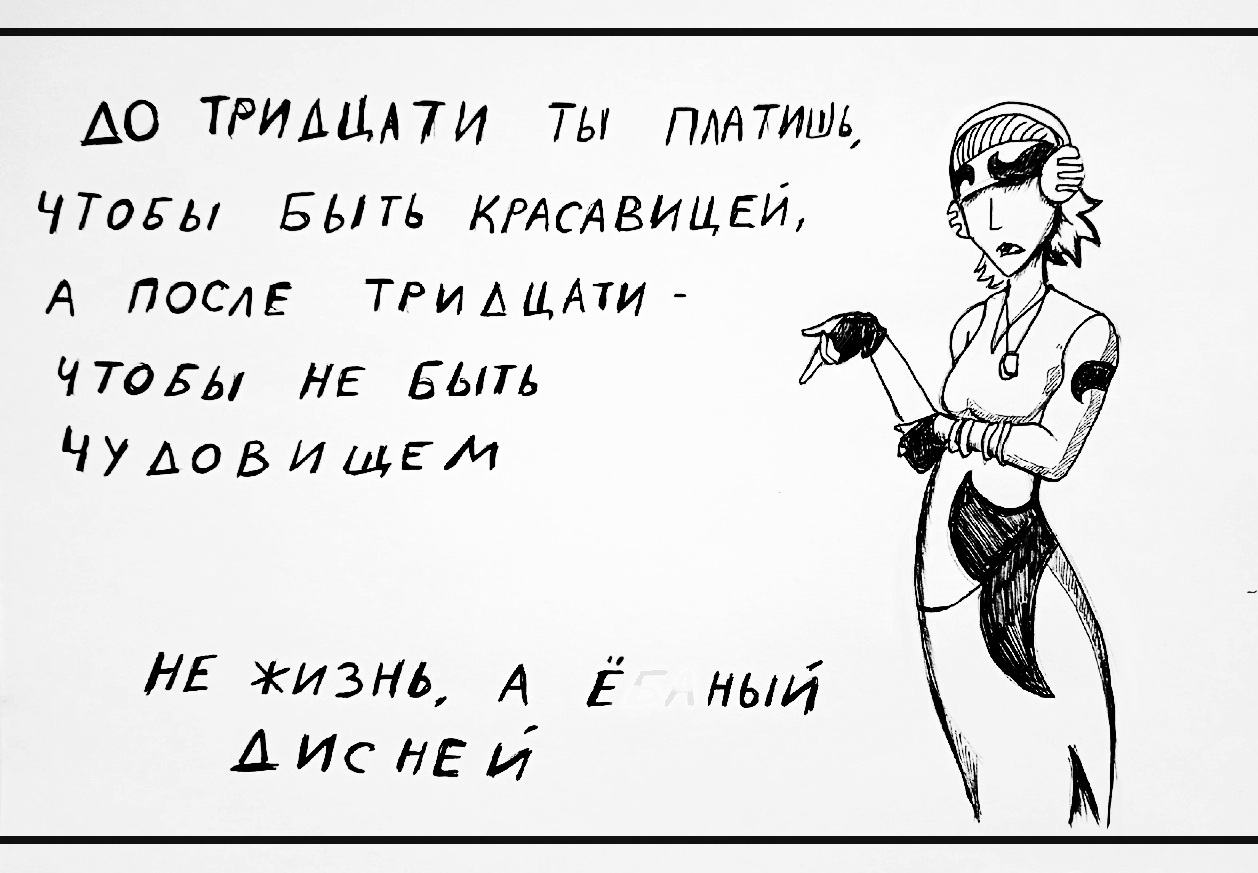 ДО ТРИДЦАТИ ТЫ ПЛАТИШЬ,
ЧТОБЫ БЫТЬ КРАСАВИЦЕЙ,
А ПОСЛЕ ТРИДЦАТИ -
ЧТОБЫ НЕ БЫТЬ
ЧУДОВИЩЕМ
НЕ ЖИЗНЬ, А ЁБАНЫЙ
ДИСНЕЙ